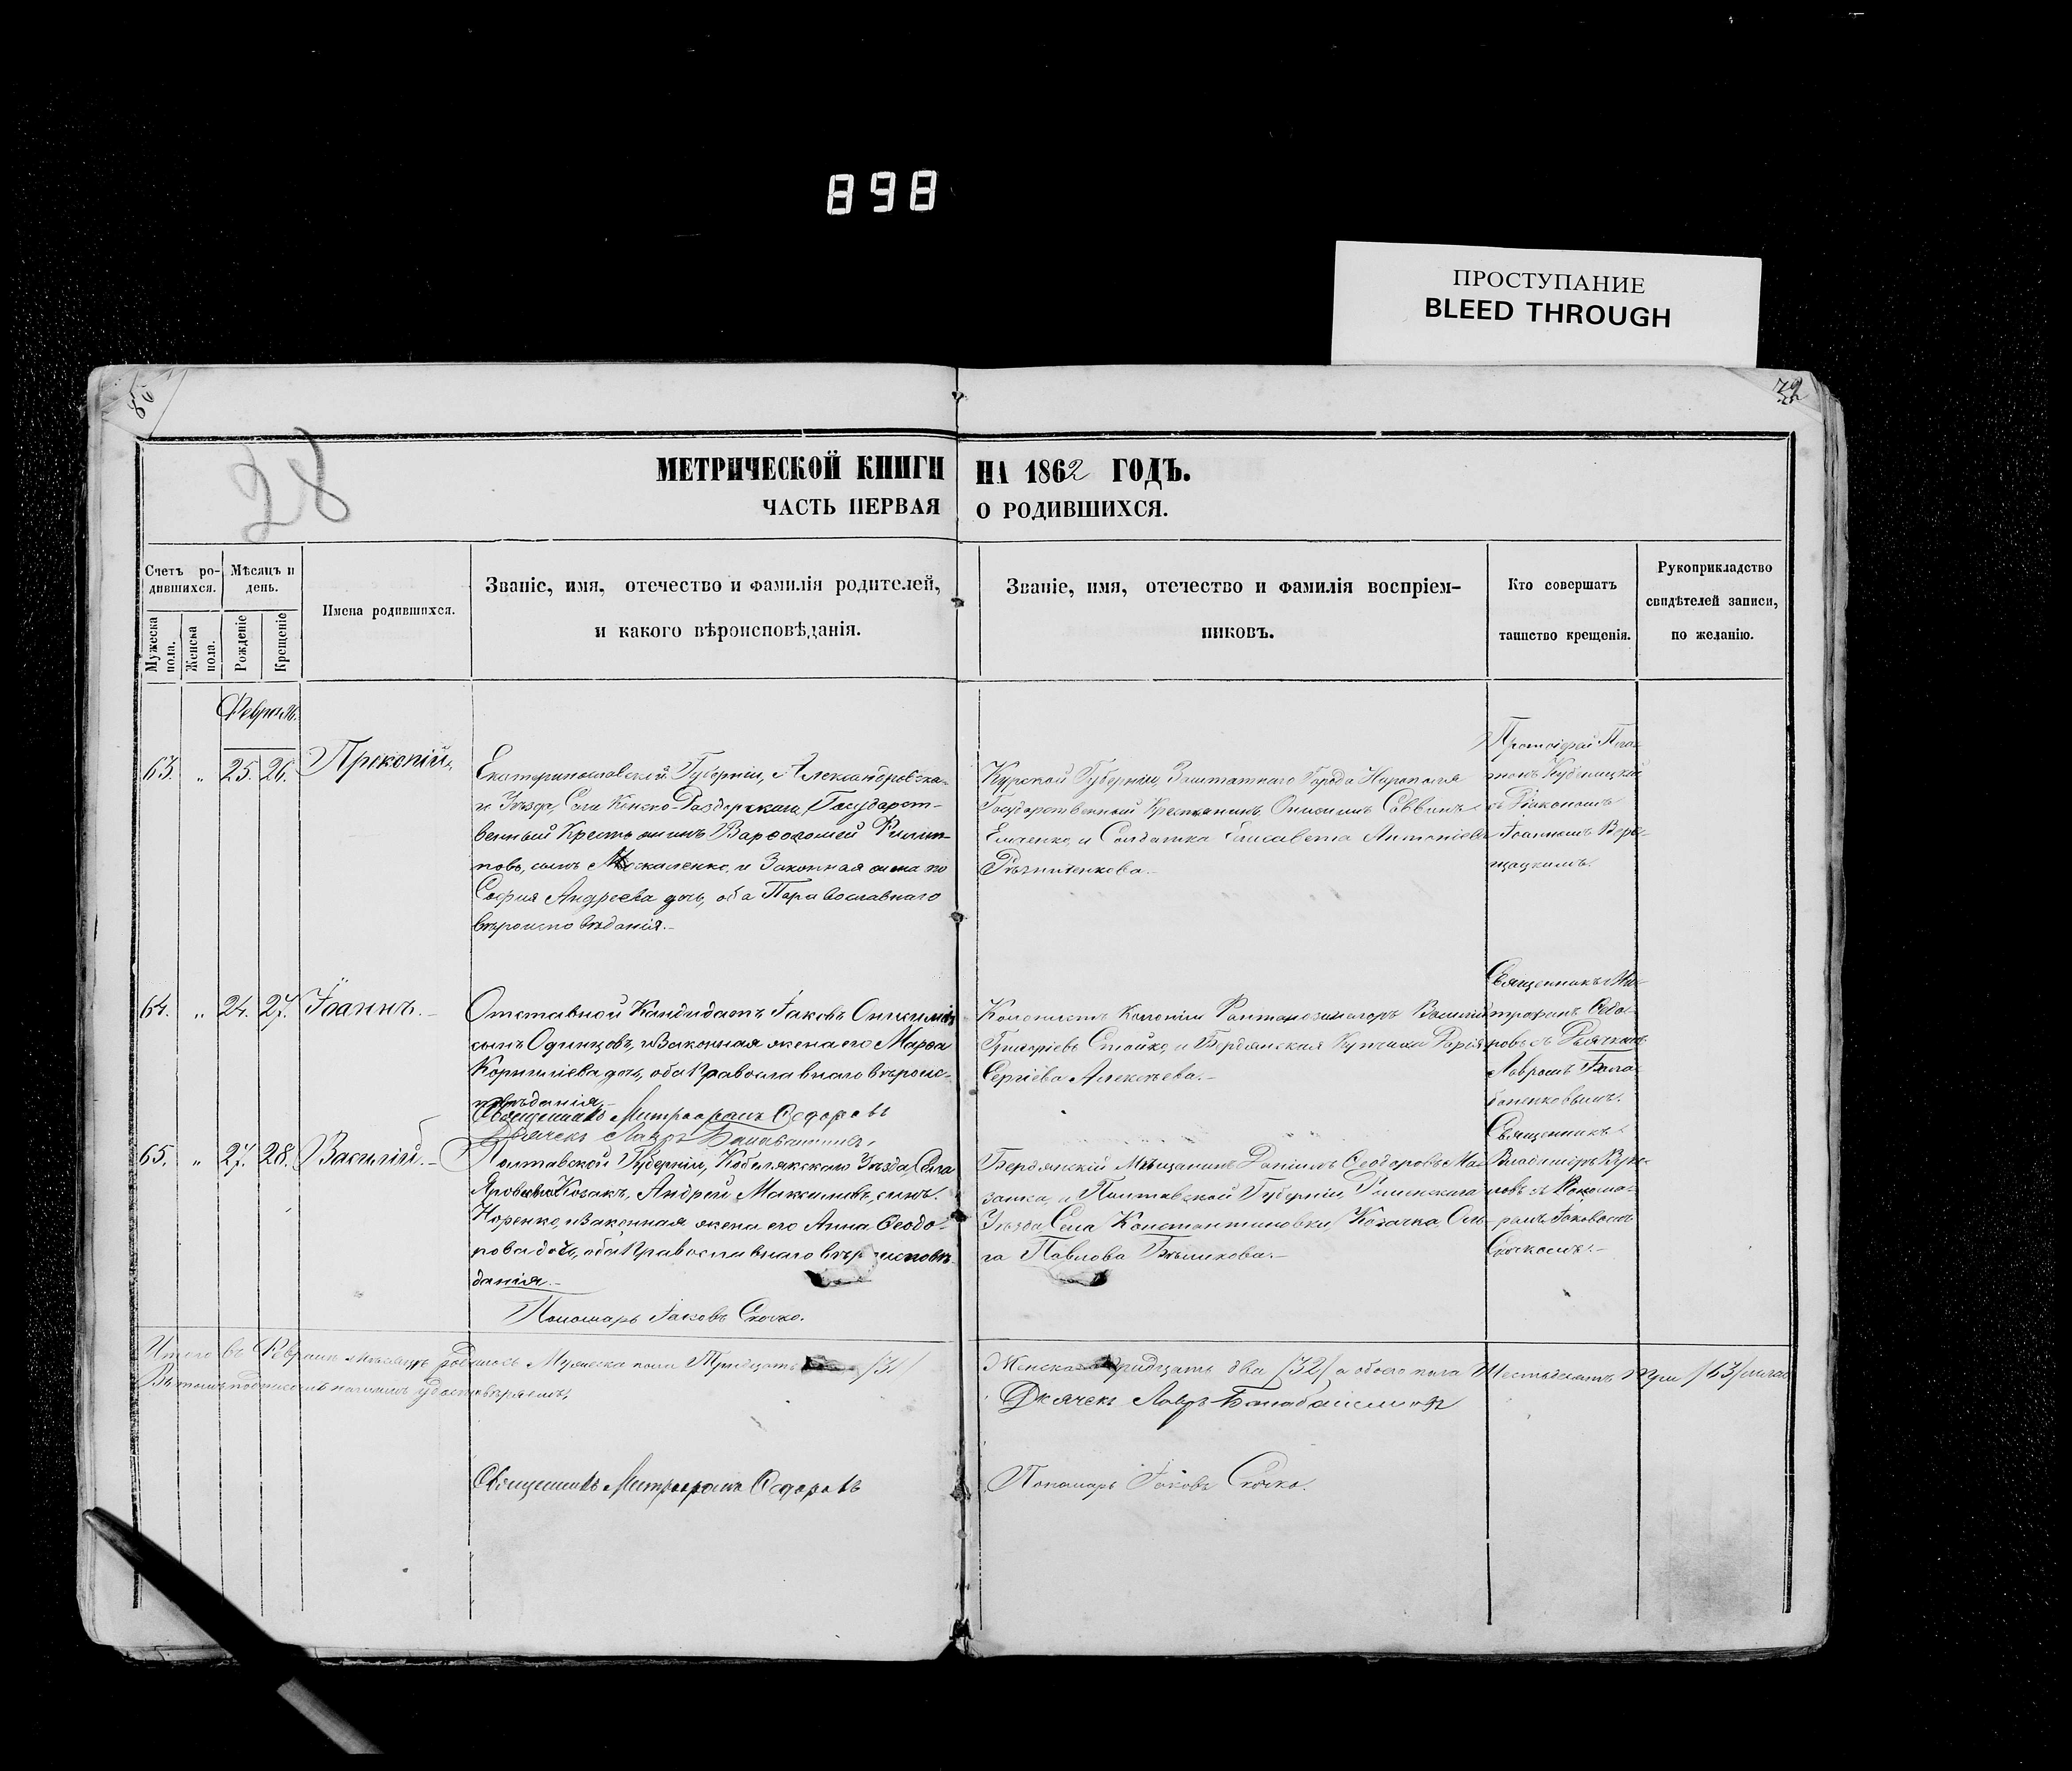 898
ПРОСТУПАНИЕ
BLEED THROUGH
32
28
МЕТРИЧЕСКОЙ КНИГИ НА 1862 ГОДЪ.
ЧАСТЬ ПЕРВАЯ О РОДИВШИХСЯ.
Счетъ ро-
дившихся.
Мужеска
пола.
Женска
пола.
Мѣсяцъ и
день.
Рожденіе
Крещеніе
Имена родившихся.
Званіе, имя, отечество и фамилія родителей,
и какого вѣроисповѣданія.
Званіе, имя, отечество и фамилія воспріем-
никовъ.
Кто совершатъ
таинство крещенія.
Рукоприкладство
свидѣтелей записи,
по желанію.
Февраль.
63. „ 25. 26. Прокопій.
Екатеринославской Губерніи, Александровска-
го Уѣзда, Села Конско-Раздорскаго, Государст-
венный Крестьянинъ Варѳоломей Филип-
повъ, сынъ Москаленко, и Законная жена его
Софія Андреева дочь, оба Православнаго
вѣроисповѣданія.
Курской Губерніи, Заштатнаго Города
Государственный Крестьянинъ Онисимъ Саввинъ
Емченко, и Солдатка Елисавета Антоніева
Протоіерей Пла-
тонъ
съ Діакономъ
Іоанномъ Вере-
щацкимъ.
64. „ 24. 27. Іоаннъ.
Отставной Кандидатъ Іаковъ Онисимовъ
сынъ Одинцовъ, и Законная жена его Марѳа
Корниліева дочь, оба Православнаго вѣроис-
повѣданія.
Священникъ Митрофанъ Ѳедоровъ
Дьячекъ Лавръ
Колонистъ Колоніи Василій
Григоріевъ Стойко, и Бердянская Купчиха Дарія
Сергіева Алексѣева.
Священникъ Ми-
трофанъ Ѳедо-
ровъ съ Дьячкомъ
Лавромъ Бала-
баненковымъ.
65. „ 27. 28. Василій.
Полтавской Губерніи, Кобелякскаго Уѣзда, Села
Козакъ, Андрей Максимовъ, сынъ
Норенко, и Законная жена его Анна Ѳеодо-
рова дочь, оба Православнаго вѣроисповѣ-
данія.
Пономарь Іаковъ Скочко.
Бердянскій Мѣщанинъ Даніилъ Ѳеодоровъ Ма-
занка, и Полтавской Губерніи,
Уѣзда, Села Константиновки, Козачка Оль-
га Павлова Бѣликова.
Священникъ
Владиміръ
съ Понома-
ремъ Іаковомъ
Скочкомъ.
Итого въ Февралѣ мѣсяцѣ родилось Мужеска пола Тридцать /31/ Женска Тридцать два /32/ а обоего пола Шестьдесятъ три /63/
Въ томъ подписомъ нашимъ удостовѣряемъ,
Дьячекъ Лавръ
Священникъ Митрофанъ Ѳедоровъ
Пономарь Іаковъ Скочко.